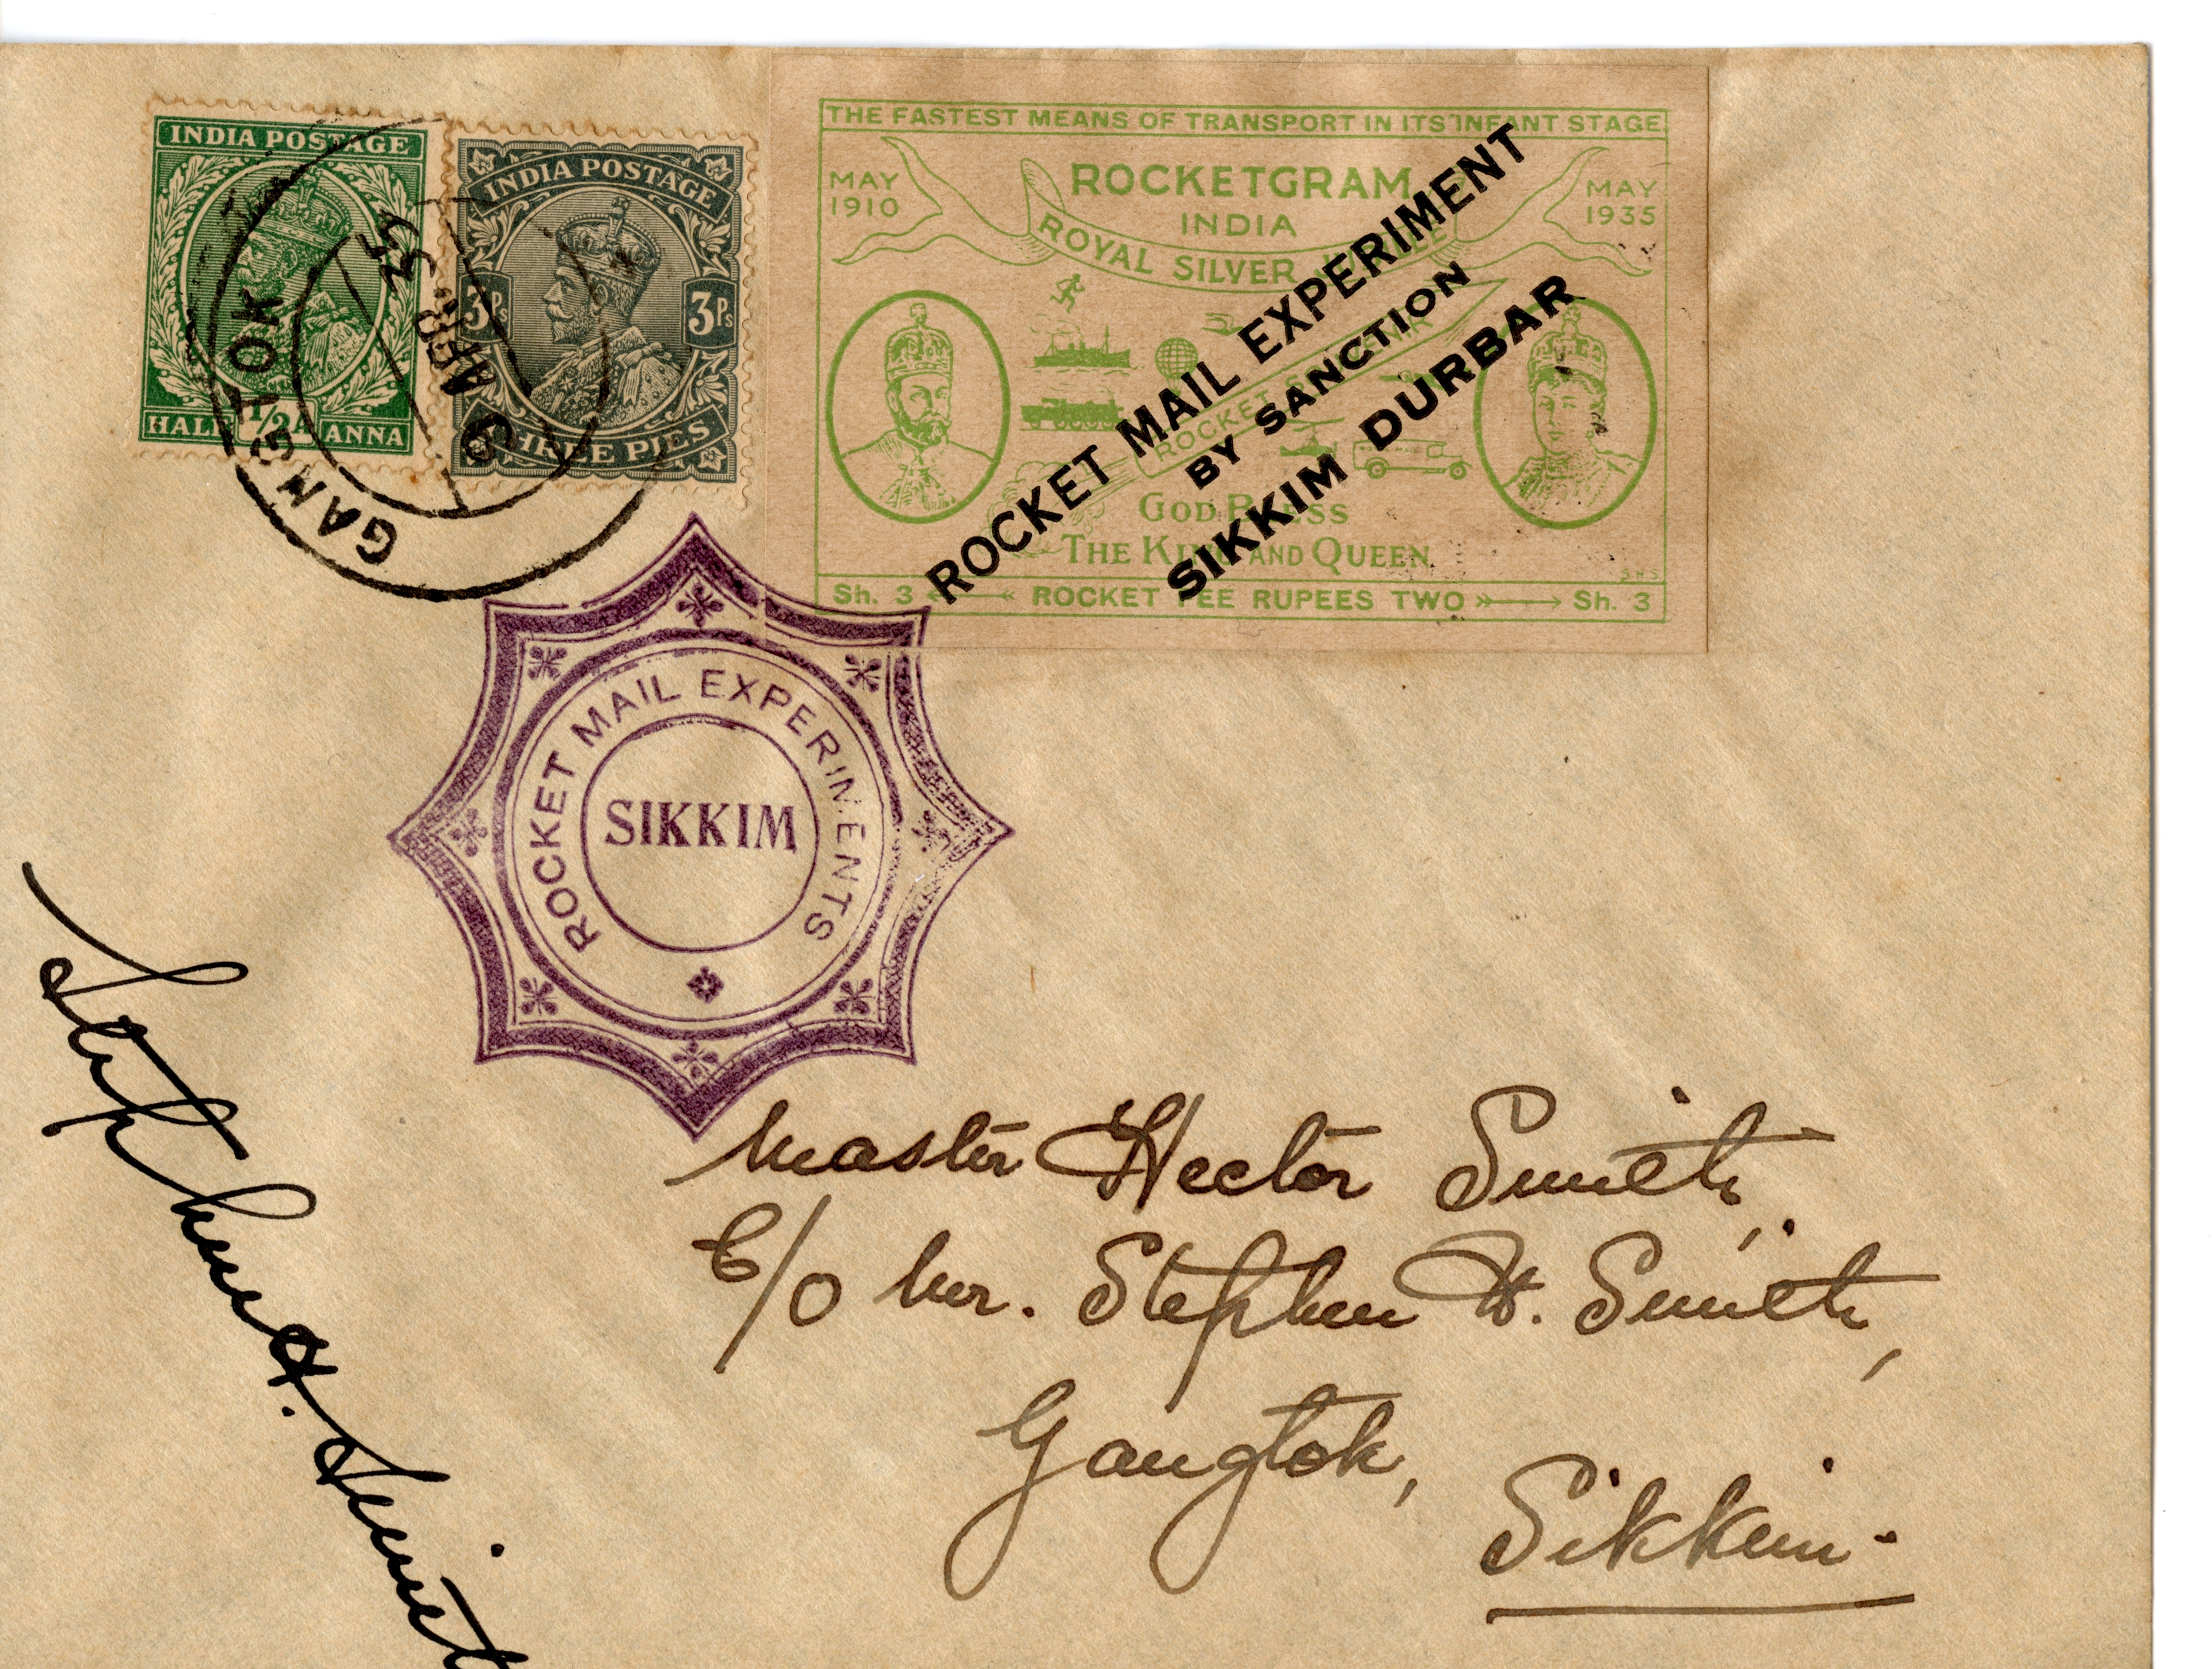 INDIA POSTAGE
HALF 1/2 A ANNA
INDIA POSTAGE
3Ps 3Ps
THREE PIES
GANGTOK
APR. 35
THE FASTEST MEANS OF TRANSPORT IN ITS INFANT STAGE
MAY 1910
ROCKETGRAM
INDIA
MAY 1935
ROYAL SILVER JUBILEE
ROCKET
GOD BLESS
THE KING AND QUEEN
SHS
Sh. 3 ROCKET FEE RUPEES TWO Sh. 3
ROCKET MAIL EXPERIMENT
BY SANCTION
SIKKIM DURBAR
ROCKET MAIL EXPERIMENTS
SIKKIM
Stephen H. Smith
Master Hector Smith,
C/O Mr. Stephen H. Smith,
Gangtok,
Sikkim.